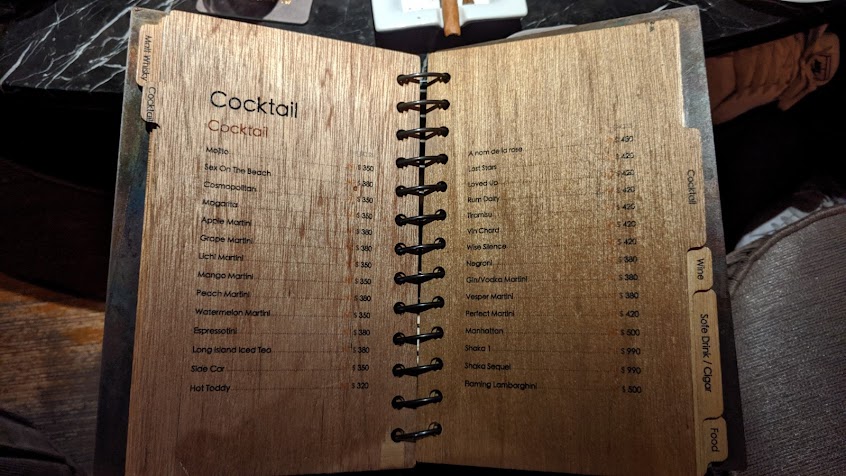 Matt Whisky
Cocktail
Cocktail
Cocktail
Mojito $ 350
Sex On The Beach $ 380
Cosmopolitan $ 350
Magarita $ 350
Apple Martini $ 380
Grape Martini $ 380
Lichi Martini $ 350
Mango Martini $ 350
Peach Martini $ 380
Watermelon Martini $ 350
Espressotini $ 380
Long Island Iced Tea $ 380
Side Car $ 350
Hot Toddy $ 320
A nom de la rose $
Last Stan $ 420
Loved Up $ 420
Rum Daily $ 420
Tiramisu $ 420
Vin Chard $ 420
Wise Silence $ 420
Negroni $ 380
Gin/Vodka Martini $ 380
Vesper Martini $ 380
Perfect Martini $ 420
Manhattan $ 500
Shaka 1 $ 990
Shaka Sequel $ 990
Flaming Lamborghini $ 500
Cocktail
Wine
Sofe Drink / Cigar
Food